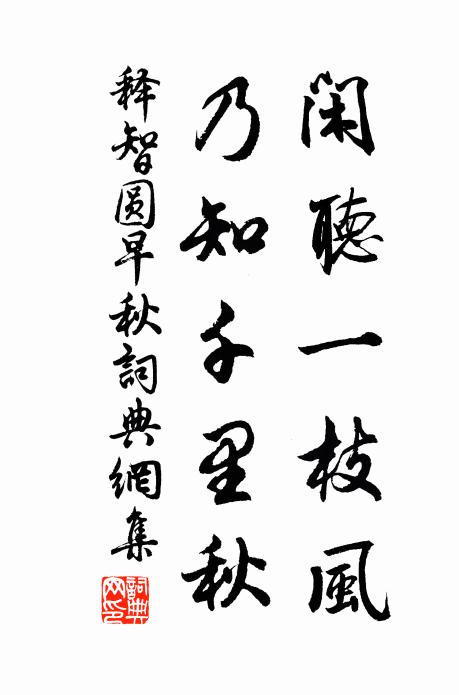 閑聽一枝風
乃知千里秋
释智圆早秋詞典網集
詞典网印